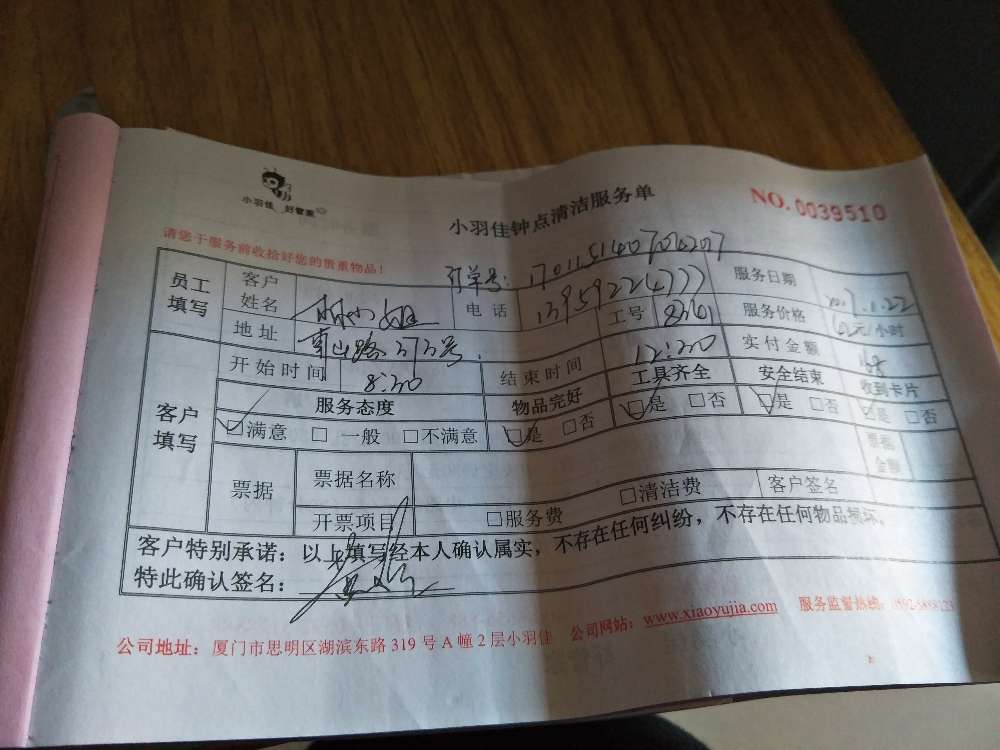 小羽佳 好管家
小羽佳钟点清洁服务单
NO.0039510
请您于服务前收拾好您的贵重物品!
订单号: 17011514070
员工填写 客户姓名 林小姐 电话 服务日期 2017.1.22
地址 工号 服务价格 小时
开始时间 8:30 结束时间 12:30 实付金额
客户填写 服务态度 物品完好 工具齐全 安全结束 收到卡片
☑满意 □ 一般 □不满意 ☑是 □否 ☑是 □否 ☑是 □否 ☑是 □否
票据 票据名称 票据金额
开票项目 □服务费 □清洁费 客户签名
客户特别承诺：以上填写经本人确认属实，不存在任何纠纷，不存在任何物品损坏。
特此确认签名：
公司地址：厦门市思明区湖滨东路 319 号 A 幢 2 层小羽佳 公司网站：www.xiaoyujia.com 服务监督热线：